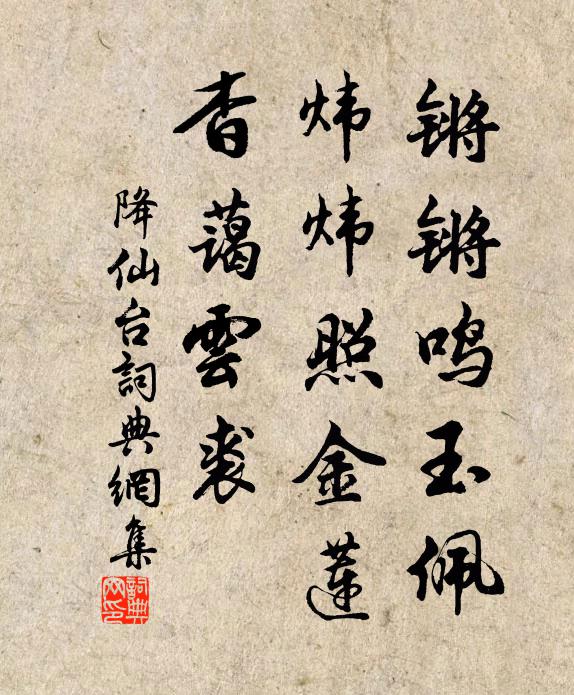 锵锵鸣玉佩
炜炜照金莲
杳蔼云裘
降仙台詞典網集
詞典网印